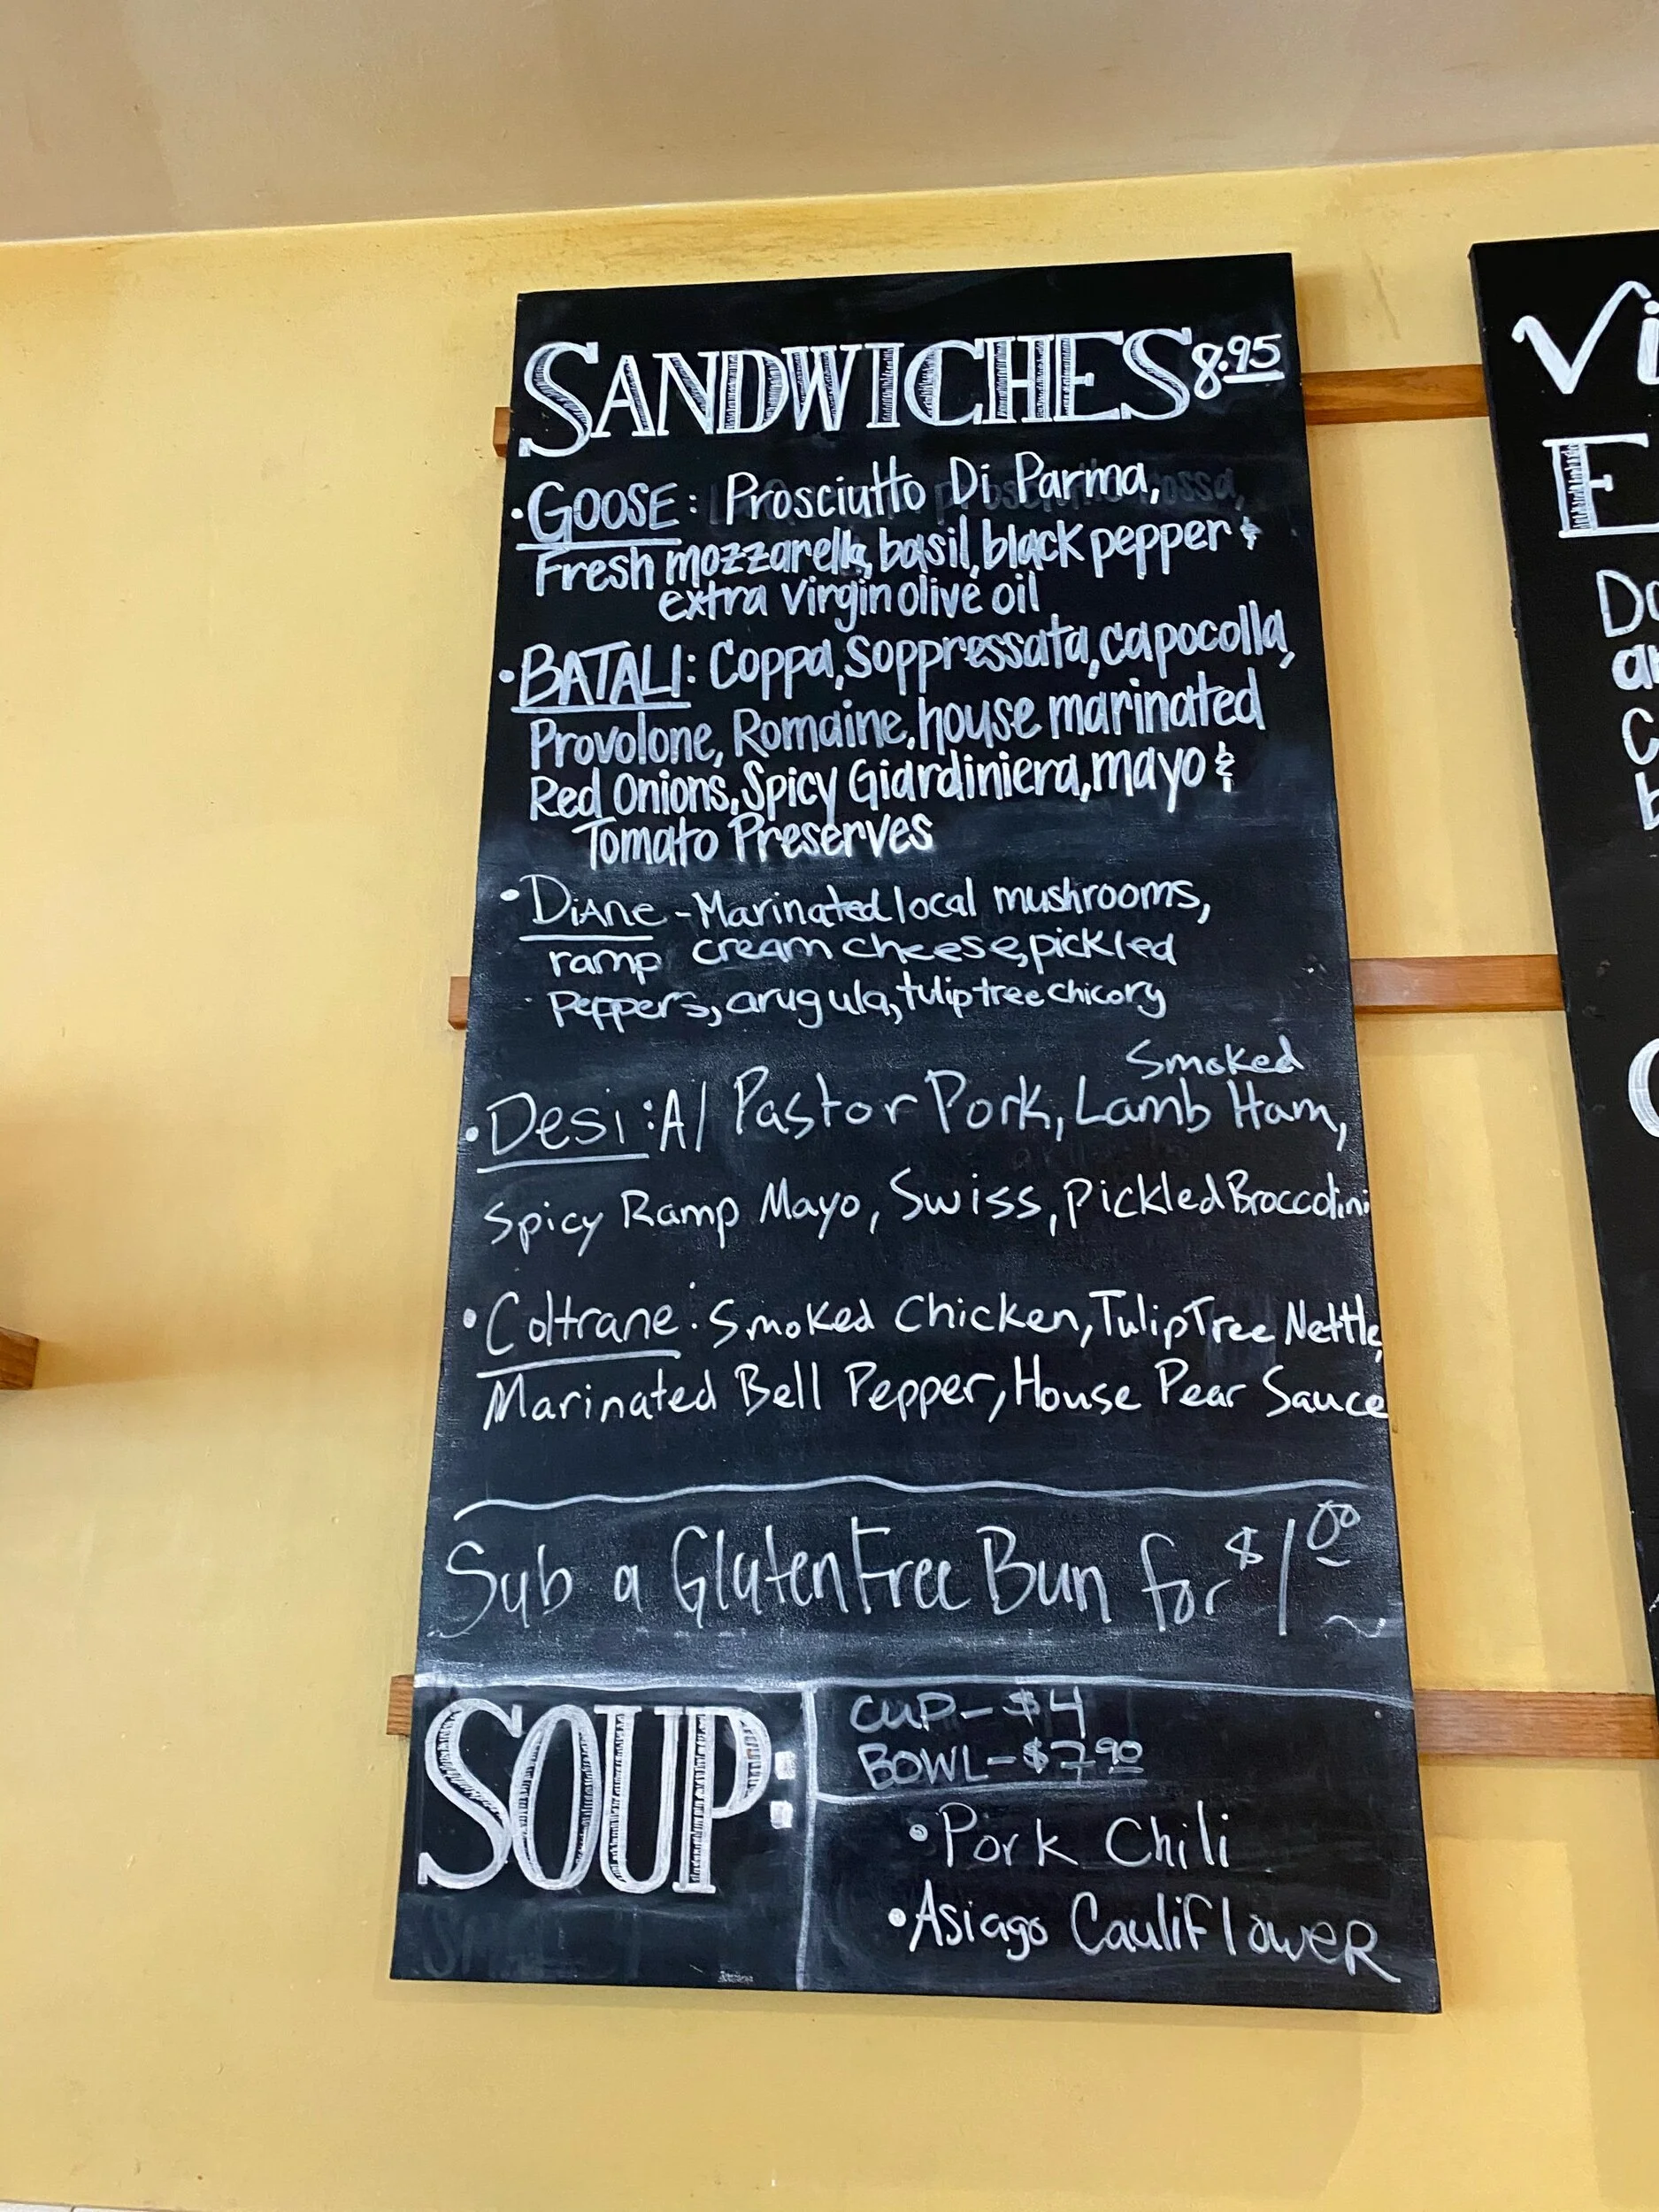 SANDWICHES 8.95
• GOOSE: Prosciutto Di Parma,
Fresh mozzarella, basil, black pepper &
extra virgin olive oil
• BATALI: Coppa, Soppressata, capocolla,
Provolone, Romaine, house marinated
Red Onions, Spicy Giardiniera, mayo &
Tomato Preserves
• Diane - Marinated local mushrooms,
ramp cream cheese, pickled
Peppers, arugula, tulip tree chicory
Smoked
• Desi: Al Pastor Pork, Lamb Ham,
Spicy Ramp Mayo, Swiss, Pickled Broccolini
• Coltrane: Smoked Chicken, Tulip Tree Nettle,
Marinated Bell Pepper, House Pear Sauce
Sub a Gluten Free Bun for $1.00
SOUP:
CUP - $4
BOWL - $7.90
• Pork Chili
• Asiago Cauliflower
Vi
E
Do
an
C
b